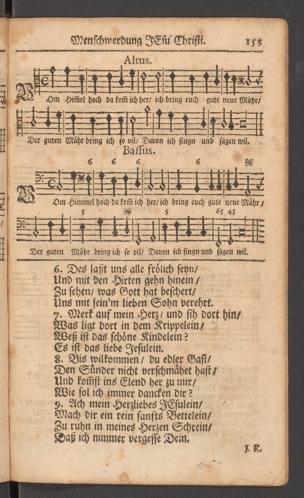 Menschwerdung JEsu Christi. 153
Altus.
VOm Him̃el hoch da kom̃ ich her/ ich bring euch gute neue Mähr/
Der guten Mähr bring ich so vil/ Davon ich singn und sagen wil.
Bassus.
6 6 6 6
VOm Himmel hoch da kom̃ ich her/ ich bring euch gute neue Mähr/
5 5 65 43
Der guten Mähr bring ich so vil/ Davon ich singn und sagen wil.
6. Des laßt uns alle frölich seyn/
Und mit den Hirten gehn hinein/
Zu sehen/ was Gott hat beschert/
Uns mit sein'm lieben Sohn verehrt.
7. Merk auf mein Herz/ und sih dort hin/
Was ligt dort in dem Krippelein/
Weß ist das schöne Kindelein?
Es ist das liebe Jesulein.
8. Bis wilkommen/ du edler Gast/
Den Sünder nicht verschmähet hast/
Und kom̃st ins Elend her zu mir/
Wie sol ich immer dancken dir?
9. Ach mein Herzliebes JEsulein/
Mach dir ein rein sanfts Bettelein/
Zu ruhn in meines Herzen Schrein/
Daß ich nimmer vergesse Dein.
J. K.